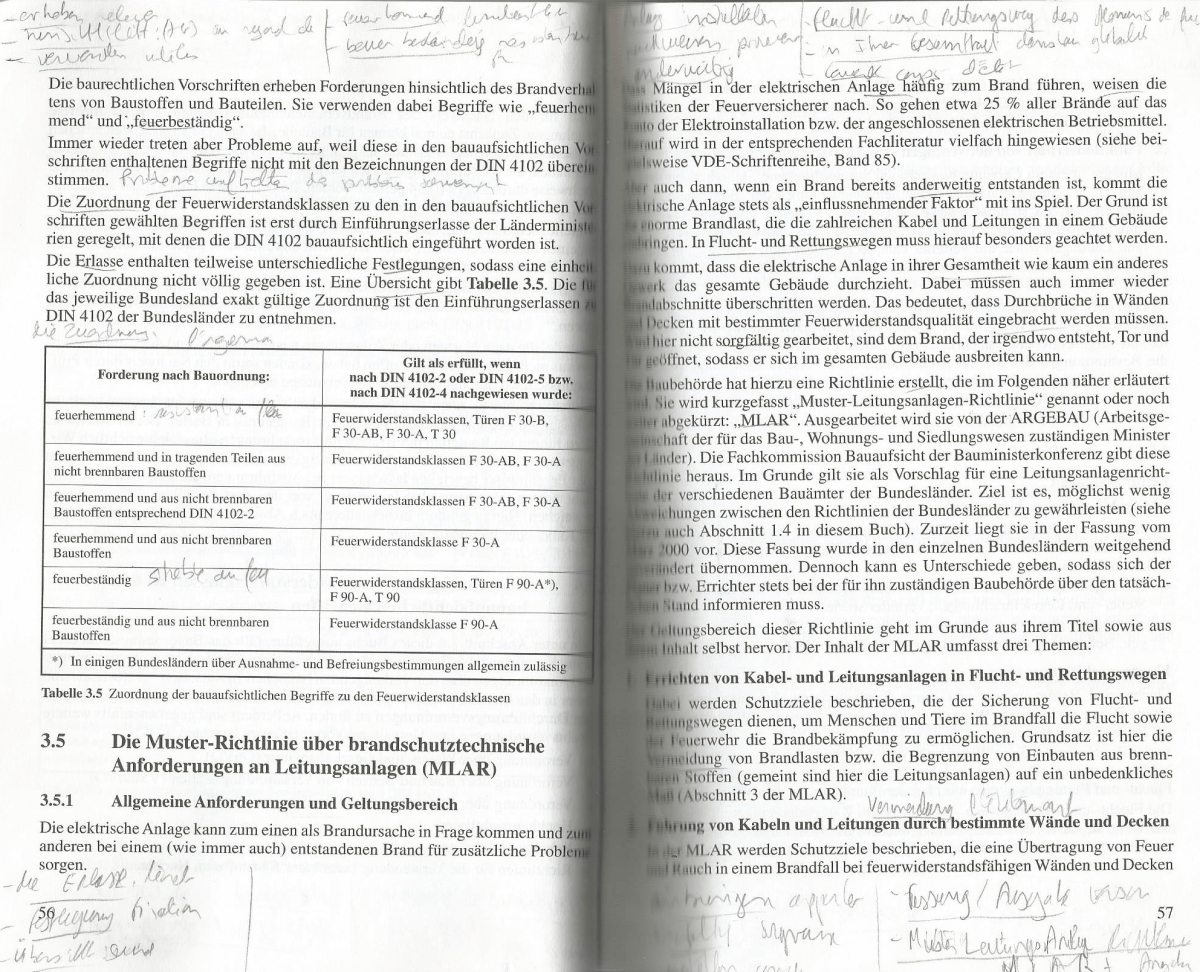 - erhoben
- verwenden utiles
feuerhemmend
Die baurechtlichen Vorschriften erheben Forderungen hinsichtlich des Brandverhal
tens von Baustoffen und Bauteilen. Sie verwenden dabei Begriffe wie „feuerhem
mend“ und „feuerbeständig“.
Immer wieder treten aber Probleme auf, weil diese in den bauaufsichtlichen Vor
schriften enthaltenen Begriffe nicht mit den Bezeichnungen der DIN 4102 überein
stimmen.
Die Zuordnung der Feuerwiderstandsklassen zu den in den bauaufsichtlichen Vor
schriften gewählten Begriffen ist erst durch Einführungserlasse der Länderministe
rien geregelt, mit denen die DIN 4102 bauaufsichtlich eingeführt worden ist.
Die Erlasse enthalten teilweise unterschiedliche Festlegungen, sodass eine einheit
liche Zuordnung nicht völlig gegeben ist. Eine Übersicht gibt Tabelle 3.5. Die für
das jeweilige Bundesland exakt gültige Zuordnung ist den Einführungserlassen zu
DIN 4102 der Bundesländer zu entnehmen.
die Zuordnung
Forderung nach Bauordnung:
Gilt als erfüllt, wenn
nach DIN 4102-2 oder DIN 4102-5 bzw.
nach DIN 4102-4 nachgewiesen wurde:
feuerhemmend
Feuerwiderstandsklassen, Türen F 30-B,
F 30-AB, F 30-A, T 30
feuerhemmend und in tragenden Teilen aus
nicht brennbaren Baustoffen
Feuerwiderstandsklassen F 30-AB, F 30-A
feuerhemmend und aus nicht brennbaren
Baustoffen entsprechend DIN 4102-2
Feuerwiderstandsklassen F 30-AB, F 30-A
feuerhemmend und aus nicht brennbaren
Baustoffen
Feuerwiderstandsklasse F 30-A
feuerbeständig
Feuerwiderstandsklassen, Türen F 90-A*),
F 90-A, T 90
feuerbeständig und aus nicht brennbaren
Baustoffen
Feuerwiderstandsklasse F 90-A
*) In einigen Bundesländern über Ausnahme- und Befreiungsbestimmungen allgemein zulässig
Tabelle 3.5 Zuordnung der bauaufsichtlichen Begriffe zu den Feuerwiderstandsklassen
3.5 Die Muster-Richtlinie über brandschutztechnische
Anforderungen an Leitungsanlagen (MLAR)
3.5.1 Allgemeine Anforderungen und Geltungsbereich
Die elektrische Anlage kann zum einen als Brandursache in Frage kommen und zum
anderen bei einem (wie immer auch) entstandenen Brand für zusätzliche Probleme
sorgen.
- die Erlasse
56
- Festlegung fixation
- Übersicht
- Flucht- und Rettungsweg
- in Ihrer Gesamtheit
anderweitig
Dass Mängel in der elektrischen Anlage häufig zum Brand führen, weisen die
Statistiken der Feuerversicherer nach. So gehen etwa 25 % aller Brände auf das
Konto der Elektroinstallation bzw. der angeschlossenen elektrischen Betriebsmittel.
Darauf wird in der entsprechenden Fachliteratur vielfach hingewiesen (siehe bei-
spielsweise VDE-Schriftenreihe, Band 85).
Aber auch dann, wenn ein Brand bereits anderweitig entstanden ist, kommt die
elektrische Anlage stets als „einflussnehmender Faktor“ mit ins Spiel. Der Grund ist
die enorme Brandlast, die die zahlreichen Kabel und Leitungen in einem Gebäude
einbringen. In Flucht- und Rettungswegen muss hierauf besonders geachtet werden.
Dazu kommt, dass die elektrische Anlage in ihrer Gesamtheit wie kaum ein anderes
Gewerk das gesamte Gebäude durchzieht. Dabei müssen auch immer wieder
Brandabschnitte überschritten werden. Das bedeutet, dass Durchbrüche in Wänden
und Decken mit bestimmter Feuerwiderstandsqualität eingebracht werden müssen.
Wird hier nicht sorgfältig gearbeitet, sind dem Brand, der irgendwo entsteht, Tor und
Tür geöffnet, sodass er sich im gesamten Gebäude ausbreiten kann.
Die Baubehörde hat hierzu eine Richtlinie erstellt, die im Folgenden näher erläutert
wird. Sie wird kurzgefasst „Muster-Leitungsanlagen-Richtlinie“ genannt oder noch
weiter abgekürzt: „MLAR“. Ausgearbeitet wird sie von der ARGEBAU (Arbeitsge-
meinschaft der für das Bau-, Wohnungs- und Siedlungswesen zuständigen Minister
der Länder). Die Fachkommission Bauaufsicht der Bauministerkonferenz gibt diese
Richtlinie heraus. Im Grunde gilt sie als Vorschlag für eine Leitungsanlagenricht-
linie der verschiedenen Bauämter der Bundesländer. Ziel ist es, möglichst wenig
Abweichungen zwischen den Richtlinien der Bundesländer zu gewährleisten (siehe
hierzu auch Abschnitt 1.4 in diesem Buch). Zurzeit liegt sie in der Fassung vom
März 2000 vor. Diese Fassung wurde in den einzelnen Bundesländern weitgehend
unverändert übernommen. Dennoch kann es Unterschiede geben, sodass sich der
Planer bzw. Errichter stets bei der für ihn zuständigen Baubehörde über den tatsäch-
lichen Stand informieren muss.
Der Geltungsbereich dieser Richtlinie geht im Grunde aus ihrem Titel sowie aus
dem Inhalt selbst hervor. Der Inhalt der MLAR umfasst drei Themen:
1. Errichten von Kabel- und Leitungsanlagen in Flucht- und Rettungswegen
Dabei werden Schutzziele beschrieben, die der Sicherung von Flucht- und
Rettungswegen dienen, um Menschen und Tiere im Brandfall die Flucht sowie
der Feuerwehr die Brandbekämpfung zu ermöglichen. Grundsatz ist hier die
Vermeidung von Brandlasten bzw. die Begrenzung von Einbauten aus brenn-
baren Stoffen (gemeint sind hier die Leitungsanlagen) auf ein unbedenkliches
Maß (Abschnitt 3 der MLAR).
Vermeidung
2. Führung von Kabeln und Leitungen durch bestimmte Wände und Decken
In der MLAR werden Schutzziele beschrieben, die eine Übertragung von Feuer
und Rauch in einem Brandfall bei feuerwiderstandsfähigen Wänden und Decken
- Fassung / Ausgabe version
57
- Muster Leitungs Anlag Richtlinie